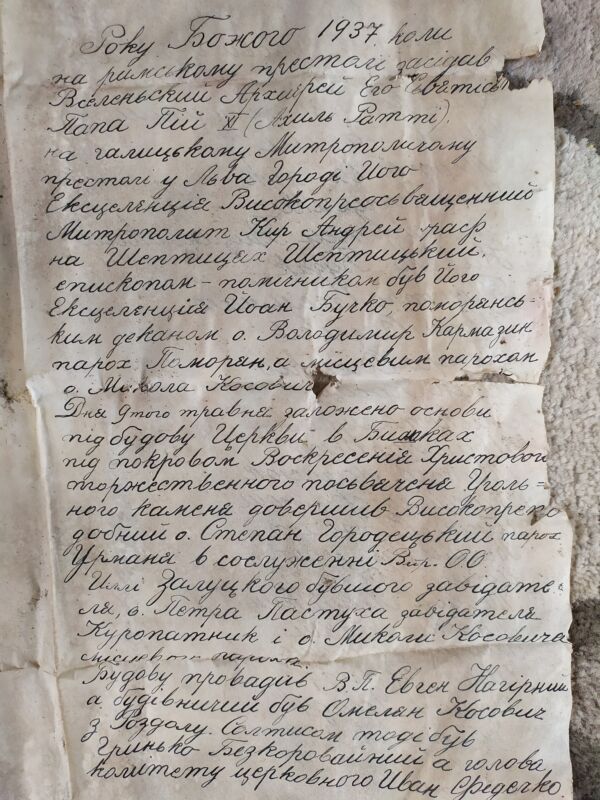 Року Божого 1937, коли
на римському престолі засідав
Вселеньский Архиєрей Его Святість
Папа Пій XI (Ахиль Ратті).
на галицькому Митрополичому
престолі у Льва Городі Його
Ексцеленція Високопреосьвященний
Митрополит Кир Андрей граф
на Шептицах Шептицький,
епископом-помічником був Його
Ексцеленція Йоан Бучко, поморянсь-
ким деканом о. Володимир Кармазин
парох Поморян, а місцевим парохом
о. Микола Косович
Дня 9того травня заложено основи
під будову Церкви в Бишках
під покровом Воскресенія Христового
торжественного посьвяченя Уголь=
ного каменя довершив Високопрепо
добний о. Степан Городецький парох
Урманя в сослуженні Впр. ОО
Іллі Залуцкого бувшого завідате-
ля, о. Петра Пастуха завідателя
Куропатник і о. Миколи Косовича
місцевого пароха.
Будову провадив В.П. Евген Нагірний
а будівничий був Омелян Косович
з Роздолу. Солтисом тоді був
Гринько Безкоровайний а голова
комітету церковного Иван